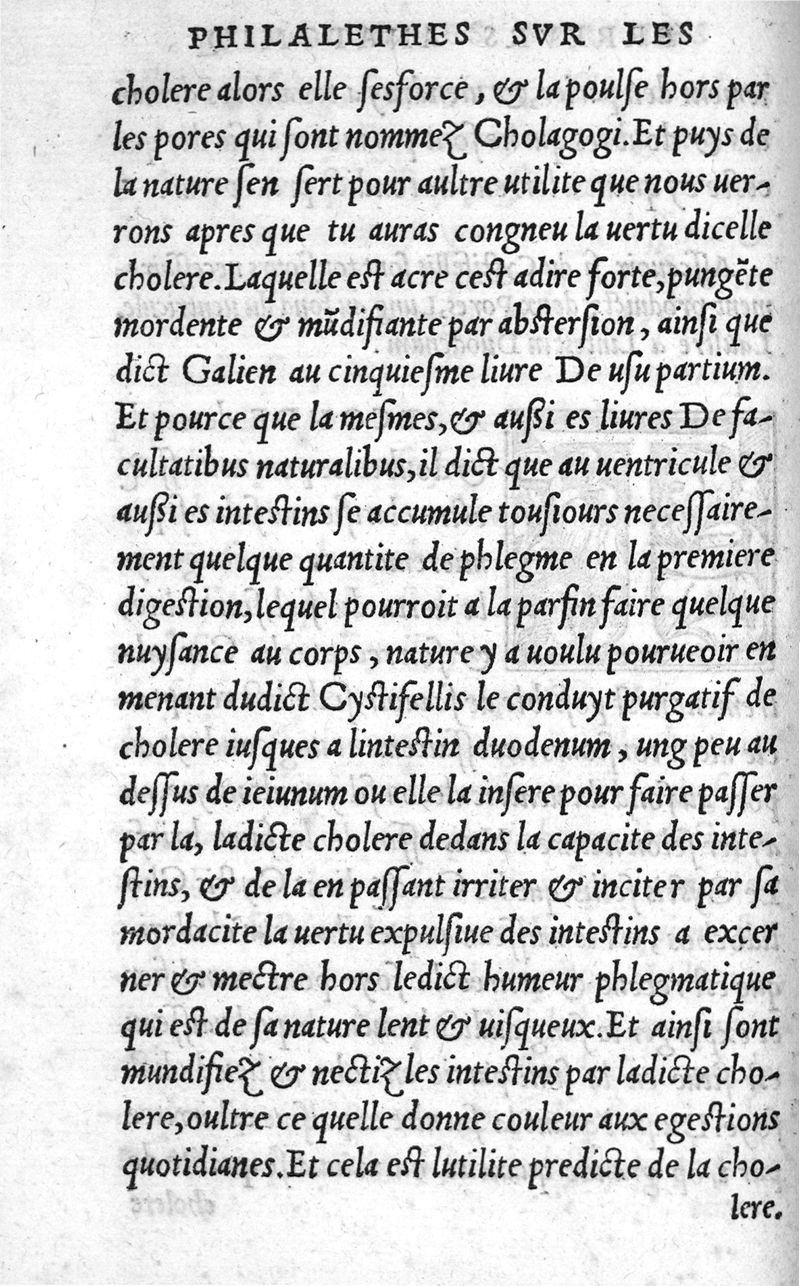 PHILALETHES SVR LES
cholere alors elle ſesforce, & la poulſe hors par
les pores qui ſont nommez Cholagogi. Et puys de
la nature ſen ſert pour aultre utilite que nous uer-
rons apres que tu auras congneu la uertu dicelle
cholere. Laquelle eſt acre ceſt adire forte, pungẽte
mordente & mũdifiante par abſterſion, ainſi que
dict Galien au cinquieſme liure De uſu partium.
Et pource que la meſmes, & außi es liures De fa-
cultatibus naturalibus, il dict que au uentricule &
außi es inteſtins ſe accumule touſiours neceſſaire-
ment quelque quantite de phlegme en la premiere
digeſtion, lequel pourroit a la parfin faire quelque
nuyſance au corps, nature y a uoulu pourueoir en
menant dudict Cyſtifellis le conduyt purgatif de
cholere iuſques a linteſtin duodenum, ung peu au
deſſus de ieiunum ou elle la inſere pour faire paſſer
par la, ladicte cholere dedans la capacite des inte-
ſtins, & de la en paſſant irriter & inciter par ſa
mordacite la uertu expulſiue des inteſtins a excer
ner & mectre hors ledict humeur phlegmatique
qui eſt de ſa nature lent & uiſqueux. Et ainſi ſont
mundifiez & nectiz les inteſtins par ladicte cho-
lere, oultre ce quelle donne couleur aux egeſtions
quotidianes. Et cela eſt lutilite predicte de la cho-
lere.